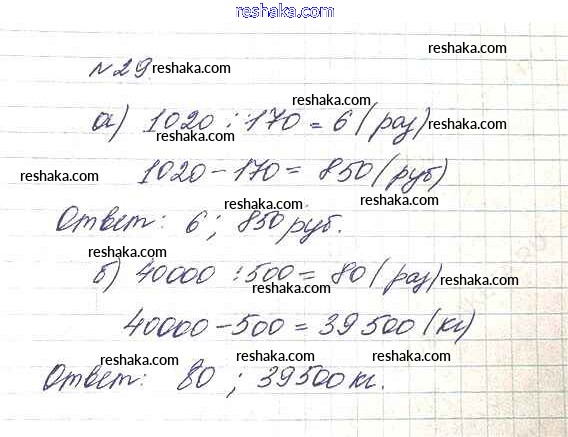 reshaka.com
reshaka.com
№29. reshaka.com
reshaka.com
а) 1020 : 170 = 6 (раз) reshaka.com
reshaka.com
reshaka.com 1020 - 170 = 850 (руб)
reshaka.com reshaka.com
Ответ: 6 ; 850 руб.
reshaka.com
б) 40000 : 500 = 80 (раз) reshaka.com
reshaka.com
40000 - 500 = 39 500 (кг)
reshaka.com reshaka.com reshaka.com
Ответ: 80 ; 39500 кг.
reshaka.com reshaka.com